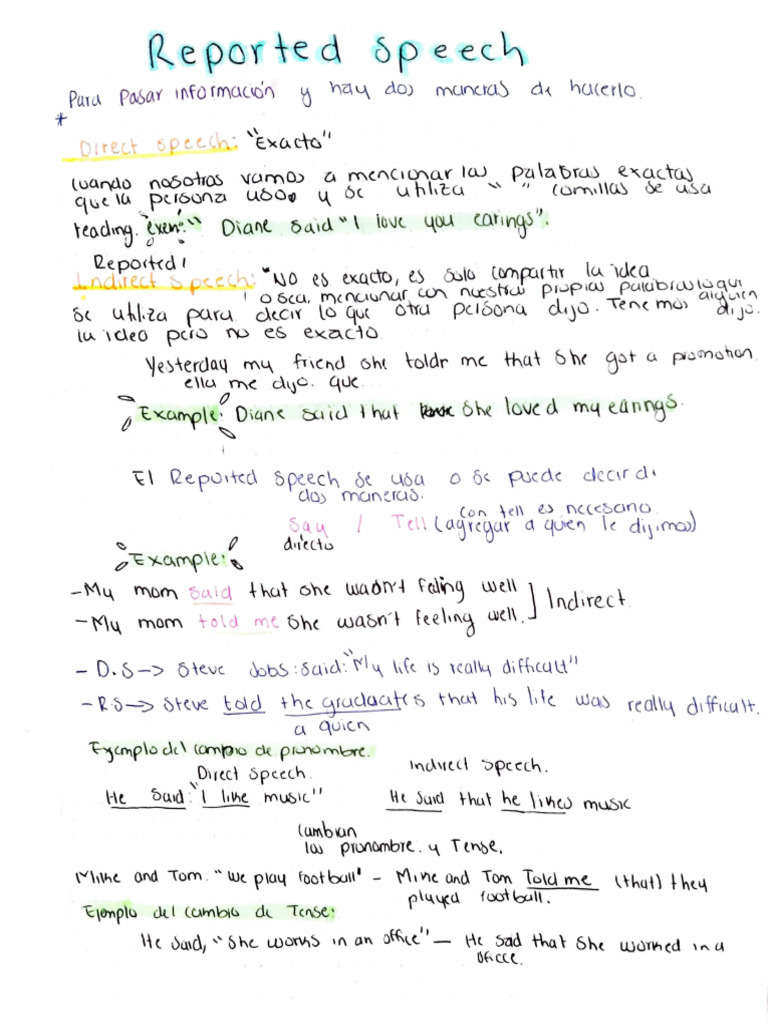 Reported speech
Para pasar información y hay dos maneras de hacerlo.
*
Direct speech: "Exacto"
Cuando nosotros vamos a mencionar las palabras exactas
que la persona uso, y se utiliza " " comillas se usa
reading. Diane said "I love you earings".
Reported /
Indirect speech: "No es exacto, es solo compartir la idea
o sea, mencionar con nuestras propias palabras lo que
alguien
se utiliza para decir lo que otra persona dijo. Tenemos dijo.
la idea pero no es exacto.
Yesterday my friend she toldr me that she got a promotion
ella me dijo. que...
Example: Diane said that she loved my earings.
El Reported speech se usa o se puede decir d
dos maneras.
con tell es necesario
Say / Tell (agregar a quien le dijimos)
directo
Example:
- My mom said that she wasn't feling well
- My mom told me she wasn't feeling well. ] Indirect.
- D.S -> Steve Jobs: said: "My life is really difficult"
- R.S -> Steve told the graduates that his life was really difficult.
a quien
Ejemplo del cambio de pronombre.
Direct speech. Indirect speech.
He said: "I like music" He said that he likes music
Cambian
los pronombre. y Tense.
Mike and Tom. "We play football" - Mike and Tom Told me (that) they
played football.
Ejemplo del cambio de Tense:
He said, "She works in an office" - He sad that she worked in a
officce.